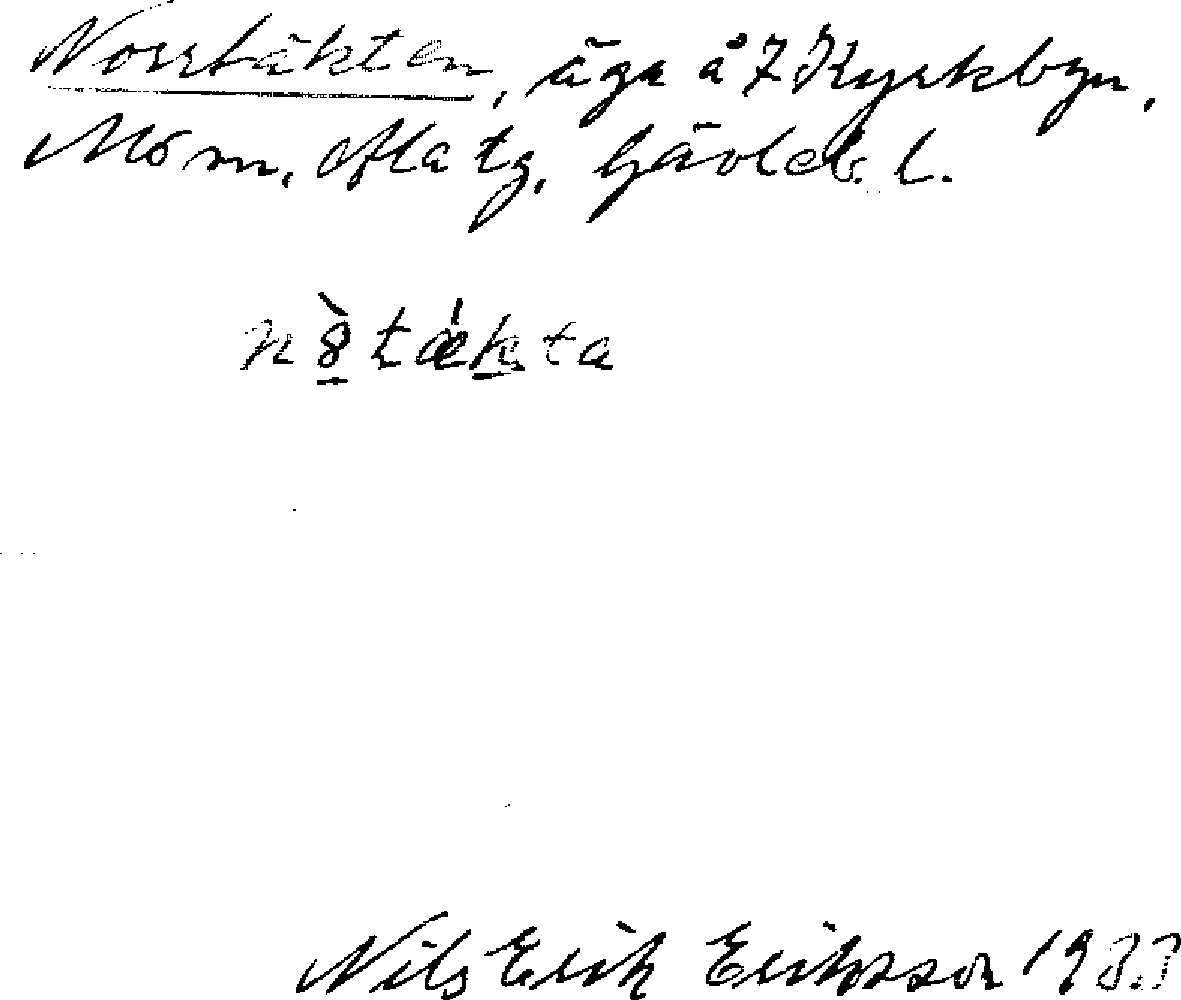 Norrtäkten, äga å 7 Kyrkbyn,
Mo sn, Ala tg, Gävleb. l.
n8̀tǽkta
Nils Erik Eriksson 1933